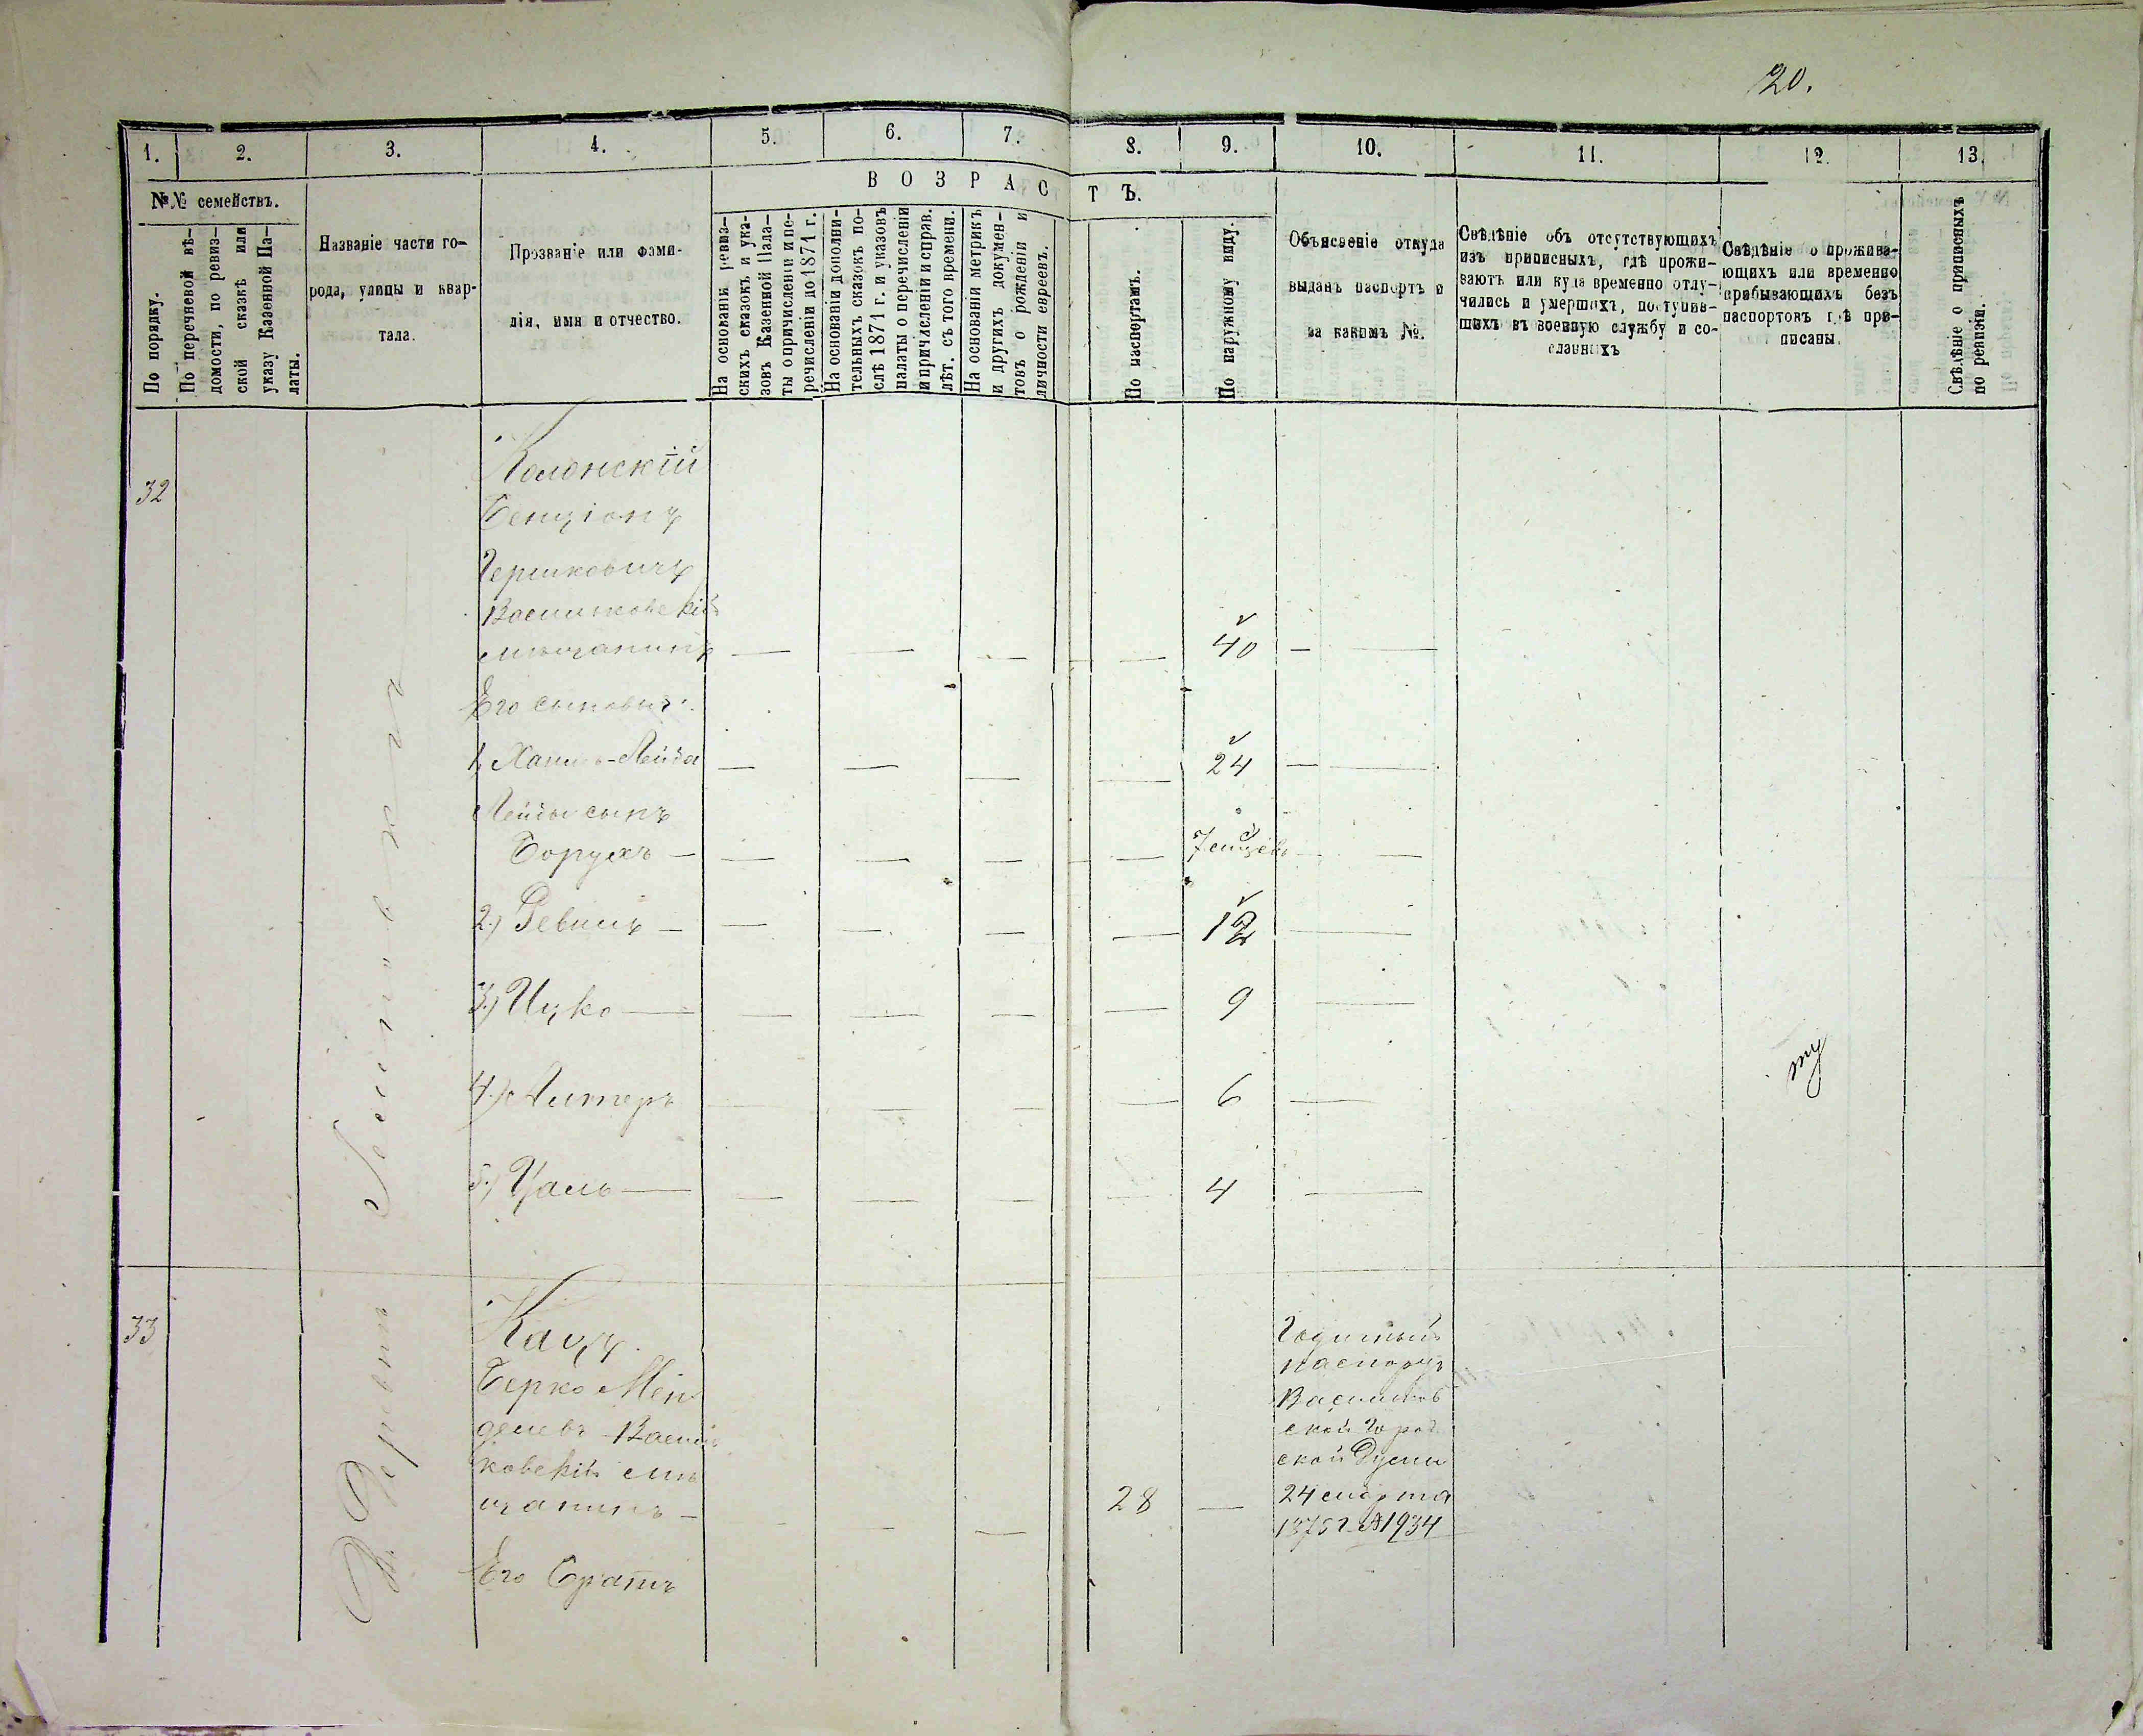 20.
1.
2.
3.
4.
5.
6.
7.
8.
9.
10.
11.
12.
13.
№№ семействъ.
По порядку.
По перечневой вѣ-
домости, по ревиз-
ской сказкѣ или
указу Казенной Па-
латы.
Названіе части го-
рода, улицы и квар-
тала.
Прозваніе или фами-
лія, имя и отчество.
ВОЗРАСТЪ.
На основаніи ревиз-
скихъ сказокъ и ука-
зовъ Казенной Пала-
ты о причисленіи и пе-
речисленіи до 1871 г.
На основаніи дополни-
тельныхъ сказокъ по-
слѣ 1871 г. и указовъ
палаты о перечисленіи
и причисленіи и справ.
лѣт. съ того времени.
На основаніи метрикъ
и другихъ докумен-
товъ о рожденіи и
личности евреевъ.
По паспортамъ.
По наружному виду.
Объясненіе откуда
выданъ паспортъ и
за какимъ №.
Свѣдѣніе объ отсутствующихъ
изъ приписныхъ, гдѣ прожи-
ваютъ или куда временно отлу-
чились и умершихъ, поступив-
шихъ въ военную службу и со-
сланныхъ
Свѣдѣніе о прожива-
ющихъ или временно
прибывающихъ безъ
паспортовъ гдѣ при-
писаны.
Свѣдѣніе о приписныхъ
по ревизіи.
32
Колонскій
Бенціонъ
Гершковичъ
Васильковскій
мѣщанинъ — — — — 40 — —
Его сыновья:
1, — Лейба — — — — 24 — —
Лейбы сынъ
Борухъ — — — — — 7 — —
2.) Ревинъ — — — — — 12 —
3.) Ицко — — — — — 9 —
4.) Литеръ — — — — 6 —
5.) Цаль — — — — — 4 —
33
Кацъ
Берко Мен
делевъ Василь
ковскій мѣ
щанинъ — — — 28 —
Его братъ
Годичный
паспортъ
Васильков
ской Город
ской Думы
24 марта
1875 г. №1934